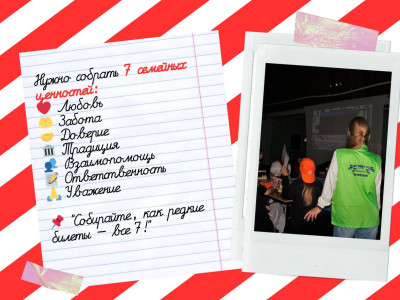 Нужно собрать 7 семейных
ценностей:
Любовь
Забота
Доверие
Традиция
Взаимопомощь
Ответственность
Уважение
"Собирайте, как редкие
билеты — все 7!"